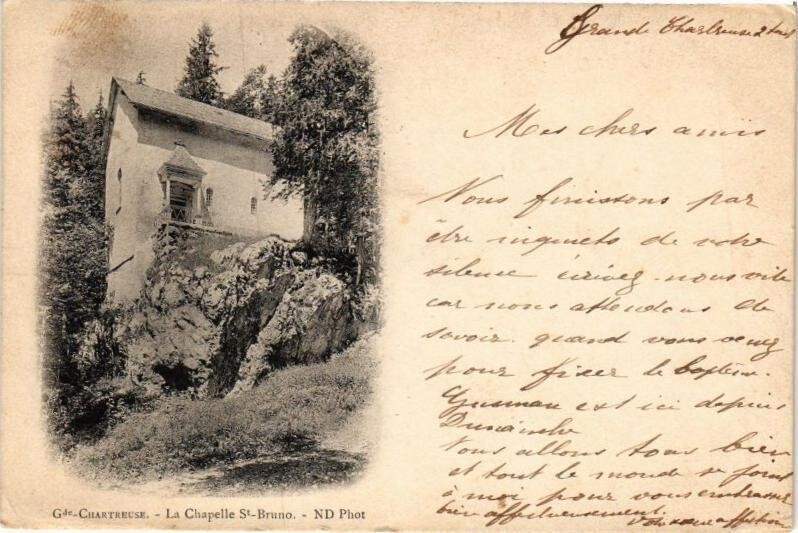 Grande Chartreuse 2
Mes chers amis
Nous finissons par
être inquiets de votre
silence écrivez-nous vite
car nous attendons de
savoir quand vous venez
pour fixer le baptême.
Gusman est ici depuis
Dimanche
Nous allons tous bien
et tout le monde se joint
à moi pour vous embrasser
bien affectueusement.
Gde-CHARTREUSE. - La Chapelle St-Bruno. - ND Phot